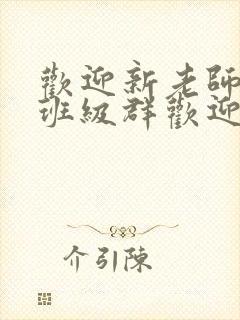 歡迎新老師
班級群歡迎
介引陳